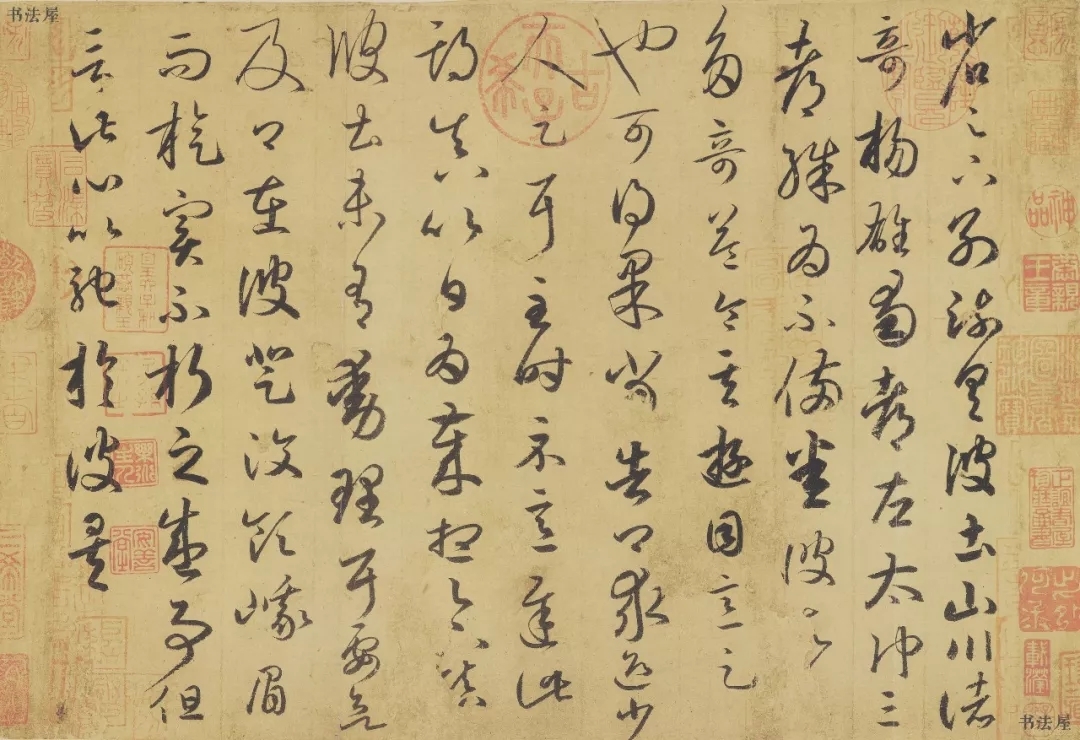 书法屋
省足下別疏具彼土山川諸
奇楊雄蜀都左太沖三
都殊為不備悉彼故為
多奇益令其遊目意足
也可得果當告卿求迎少
人足耳至時示意遲此
期真以日為歲想足下鎮
彼土未有動理耳要欲
及卿在彼登汶領峨眉
而旋實不朽之盛事但
言此心以馳於彼矣
书法屋